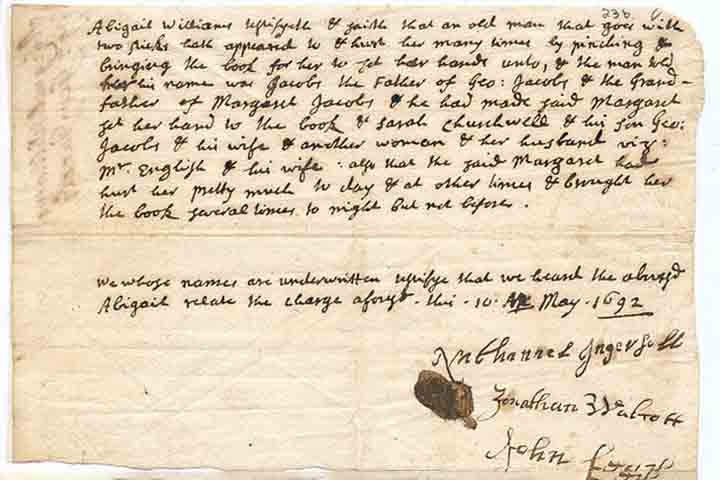 236
Abigail Williams testifyeth & saith that an old man that goes with
two sticks hath appeared to & hurt her many times by pinching &
bringing the book for her to set her hand unto, & the man told
her his name was Jacobs the Father of Geo: Jacobs & the Grand-
father of Margaret Jacobs & he had made said Margaret
set her hand to the book & Sarah Churchwell & his son Geo:
Jacobs & his wife & another woman & her husband viz:
Mr. English & his wife : also that the said Margaret had
hurt her pretty much to day & at other times & brought her
the book several times to night but not before.
We whose names are underwritten testifye that we heard the abovesd
Abigail relate the charge aforesd - this - 10 May - 1692
Nathannel Ingersoll
Jonathan Walcott
John